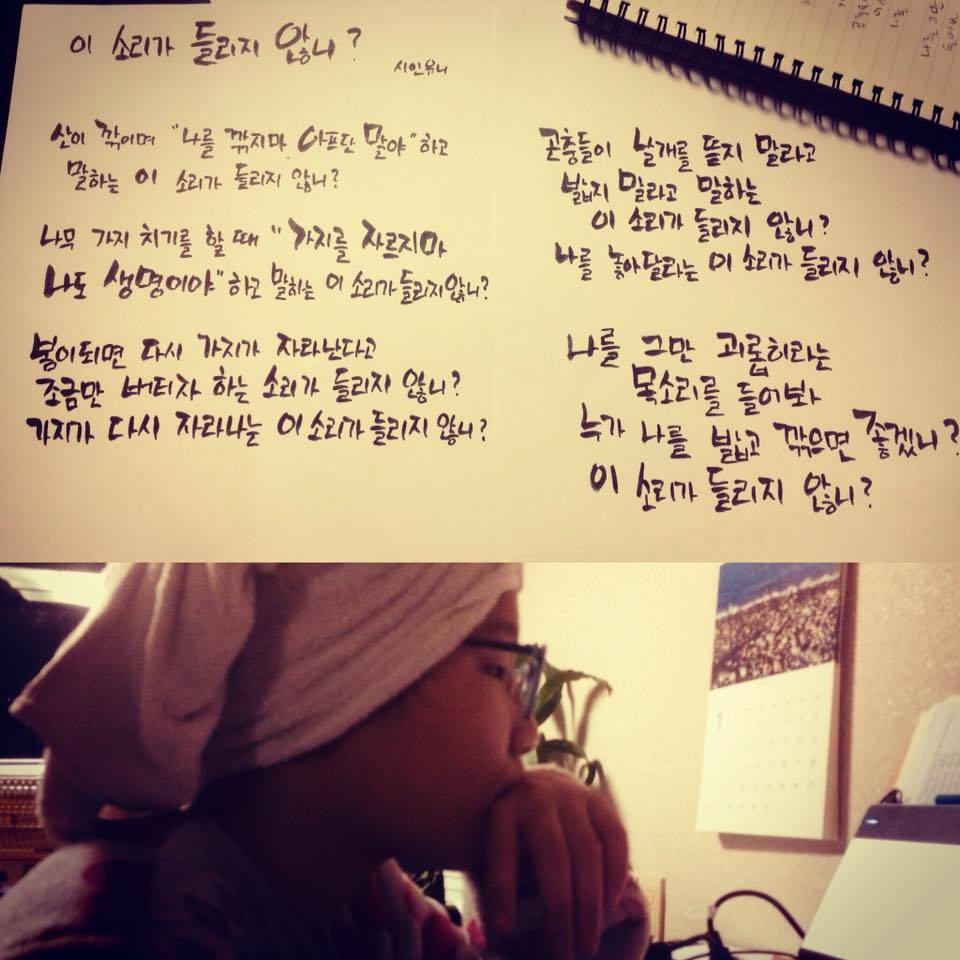 이 소리가 들리지 않니?
시인유니
산이 깎이며 "나를 깎지마 아프단 말야"하고
말하는 이 소리가 들리지 않니?
나무 가지 치기를 할 때 "가지를 자르지마
나도 생명이야"하고 말하는 이 소리가 들리지 않니?
봄이되면 다시 가지가 자라난다고
조금만 버티자 하는 소리가 들리지 않니?
가지가 다시 자라나는 이 소리가 들리지 않니?
곤충들이 날개를 뜯지 말라고
밟지 말라고 말하는
이 소리가 들리지 않니?
나를 놓아달라는 이 소리가 들리지 않니?
나를 그만 괴롭히라는
목소리를 들어봐
누가 나를 밟고 깎으면 좋겠니?
이 소리가 들리지 않니?